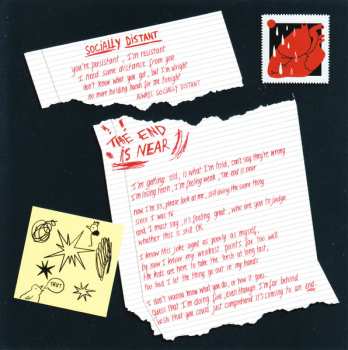 SOCIALLY DISTANT
you're persistant, I'm resistant
I need some distance from you
don't know what you got, but I'm alright
no more holding hands for me tonight
ALWAYS SOCIALLY DISTANT
THE END
IS NEAR
I'm getting old, is what I'm told, can't say they're wrong
I'm losing team, I'm feeling weak, the end is near
now I'm 51, please look at me, still doing the same thing
since I was
and I must say, it's feeling great, who are you to judge
whether this is still OK
I know this joke aged as poorly as myself,
by now I know my weakest points far too well
the kids are here to take the torch at long last,
too bad I let the thing go out in my hands
I don't wanna know what you do, or how it goes
Guess that I'm doing fine, even though I'm far behind
wish that you could just comprehend it's coming to an end
TRUST